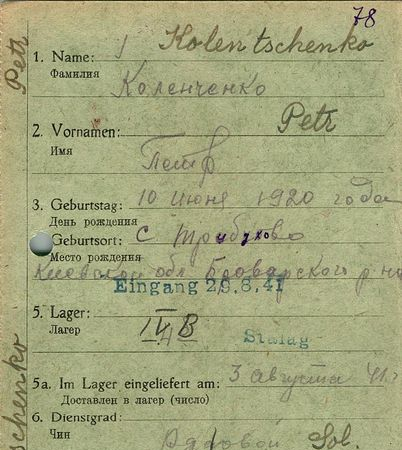 78
Kolentschenko
1. Name:
Фамилия
Коленченко
Petr
2. Vornamen: Petr
Имя
Петр
3. Geburtstag: 10 июня 1920 года
День рождения
Geburtsort: с Трибухово
Место рождения
Киевской обл Броварского р-на
Eingang 29.8.41
5. Lager: IV B
Лагер
Stalag
5a. Im Lager eingeliefert am: 3 августа 41 г
Доставлен в лагер (число)
6. Dienstgrad:
Чин
Рядовой Sol.
tschenko